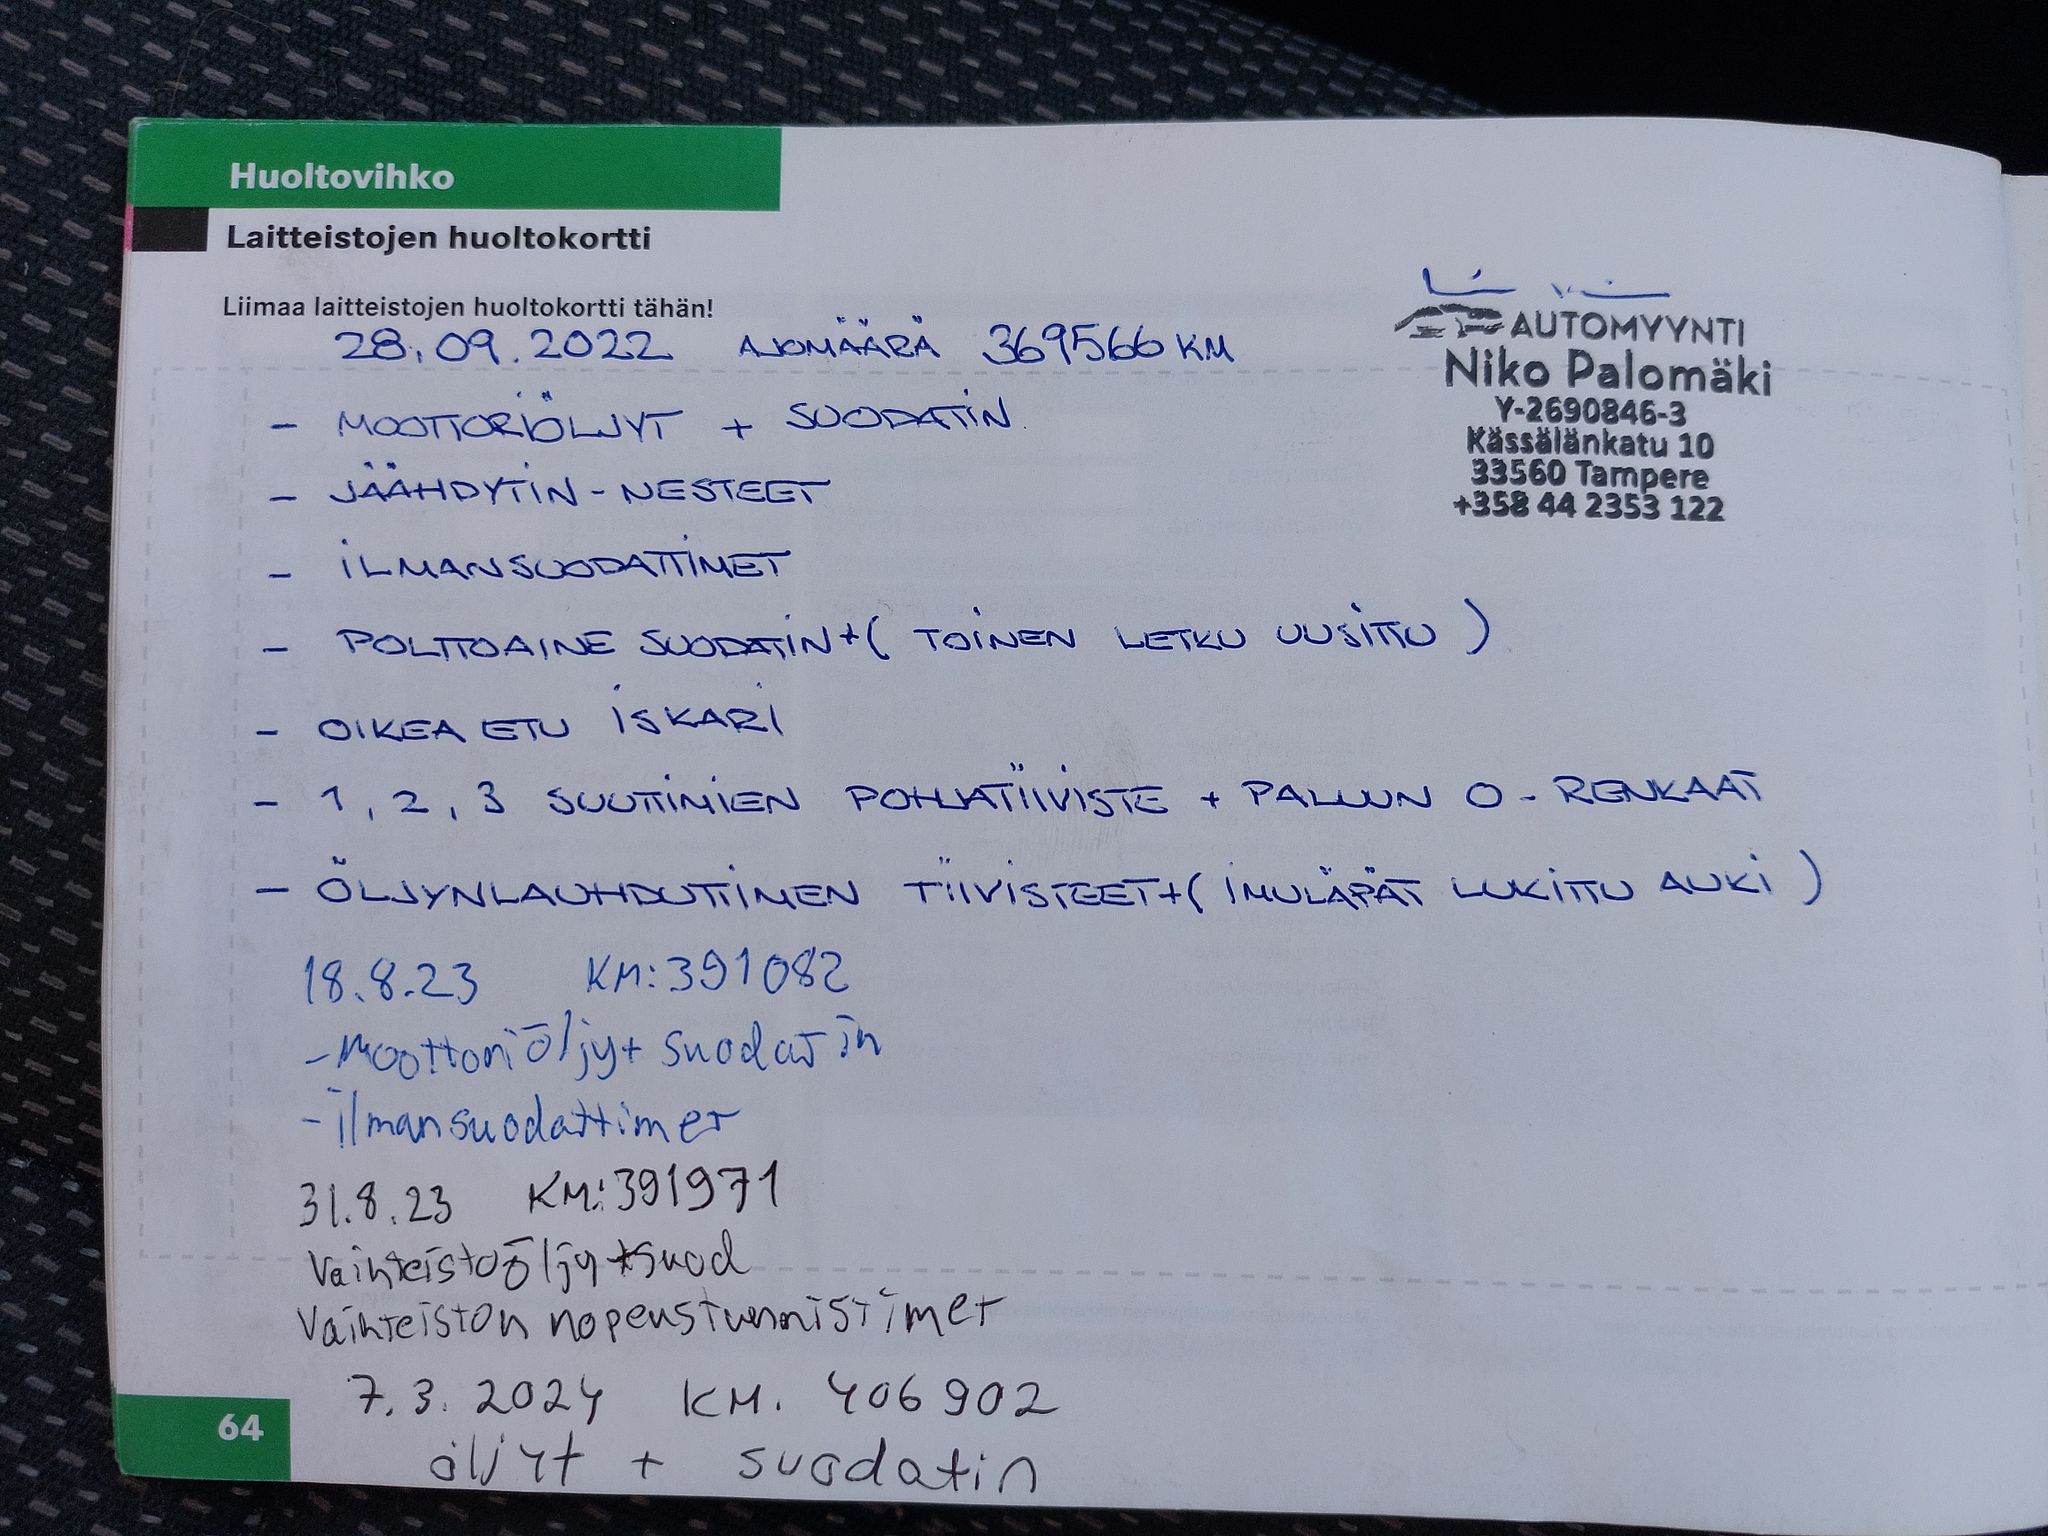 Huoltovihko
Laitteistojen huoltokortti
Liimaa laitteistojen huoltokortti tähän!
AUTOMYYNTI
Niko Palomäki
Y-2690846-3
Kässälänkatu 10
33560 Tampere
+358 44 2353 122
28.09.2022 AJOMÄÄRÄ 369566 KM
- MOOTTORIÖLJYT + SUODATIN
- JÄÄHDYTIN-NESTEET
- ILMANSUODATTIMET
- POLTTOAINE SUODATIN + (TOINEN LETKU UUSITTU)
- OIKEA ETU ISKARI
- 1, 2, 3 SUUTTIMIEN POHJATIIVISTE + PALUUN O-RENKAAT
- ÖLJYNLAUHDUTTIMEN TIIVISTEET + (IMULÄPÄT LUKITTU AUKI)
18.8.23 KM: 391082
- Moottoriöljy + suodatin
- ilmansuodattimet
31.8.23 KM: 391971
Vaihteistoöljy + suod
Vaihteiston nopeustunnistimet
7.3.2024 KM. 406902
öljyt + suodatin
64